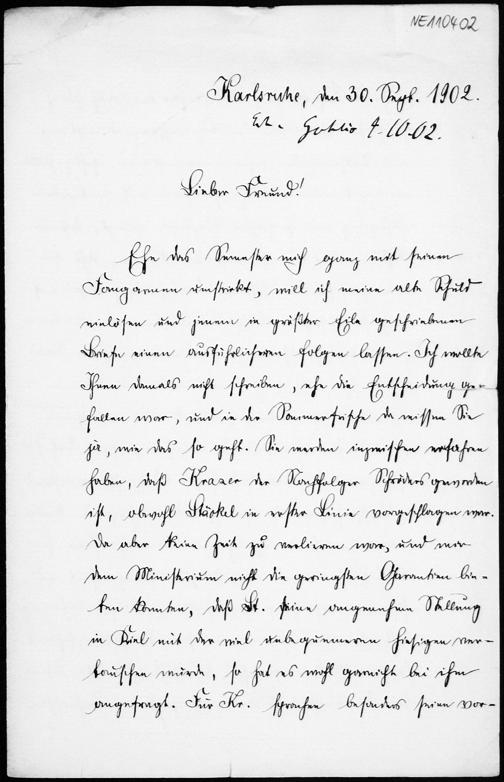 NE110402
Karlsruhe, den 30. Sept. 1902.
4-10-02.
Lieber Freund!
Ehe das Semester mich ganz mit seinen
Fangarmen umstrickt, will ich meine alte Schuld
einlösen und jenem in größter Eile geschriebenen
Briefe einen ausführlicheren folgen lassen. Ich wollte
Ihnen damals nicht schreiben, ehe die Entscheidung ge-
fallen war, und in der Sommerfrische da wissen Sie
ja, wie das so geht. Sie werden inzwischen erfahren
haben, daß Krazer der Nachfolger Schröders geworden
ist, obwohl Stäckel in erster Linie vorgeschlagen war.
Da aber keine Zeit zu verlieren war, und wir
dem Ministerium nicht die geringsten Garantien bie-
ten konnten, daß St. seine angenehme Stellung
in Kiel mit der viel unbequemeren hiesigen ver-
tauschen würde, so hat es wohl garnicht bei ihm
angefragt. Für Kr. sprachen besonders seine vor-